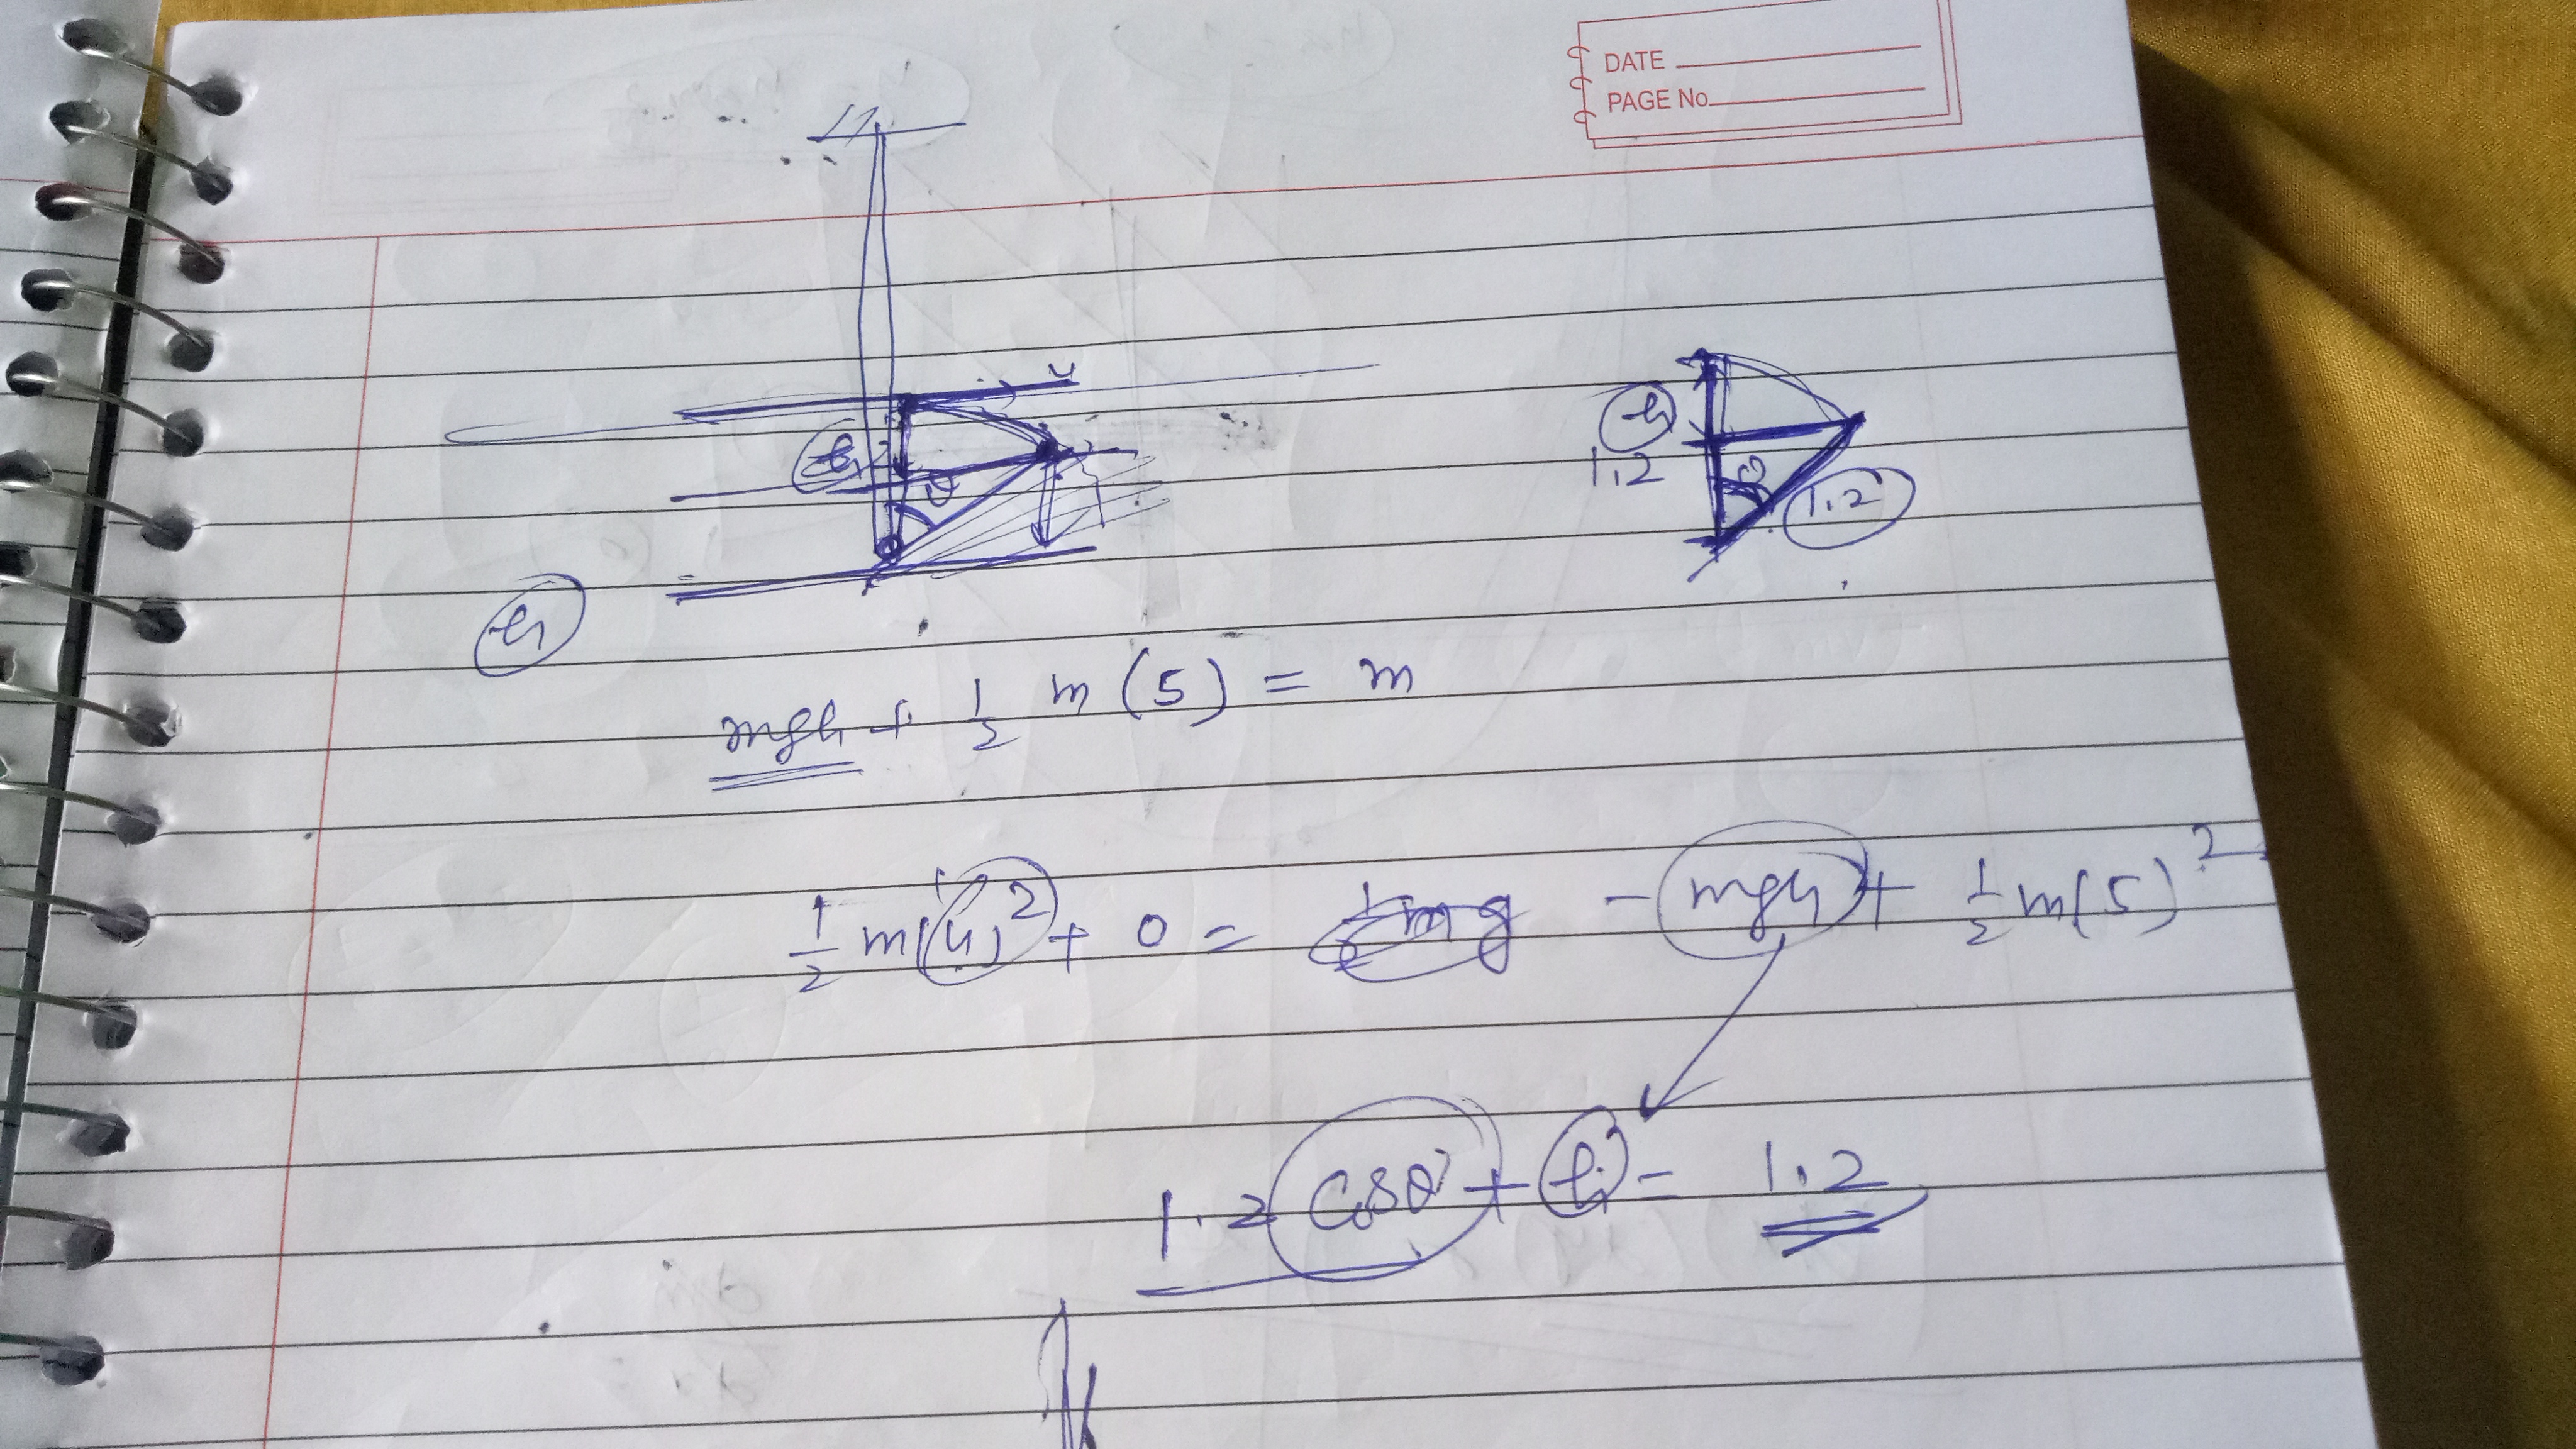 DATE
PAGE No.
u
h
θ
h
1.2
θ
1.2
h
mgh + 1/2 m (5) = m
1/2 m(u)² + 0 = - mgh + 1/2 m(5)²
1.2 Cosθ + h = 1.2